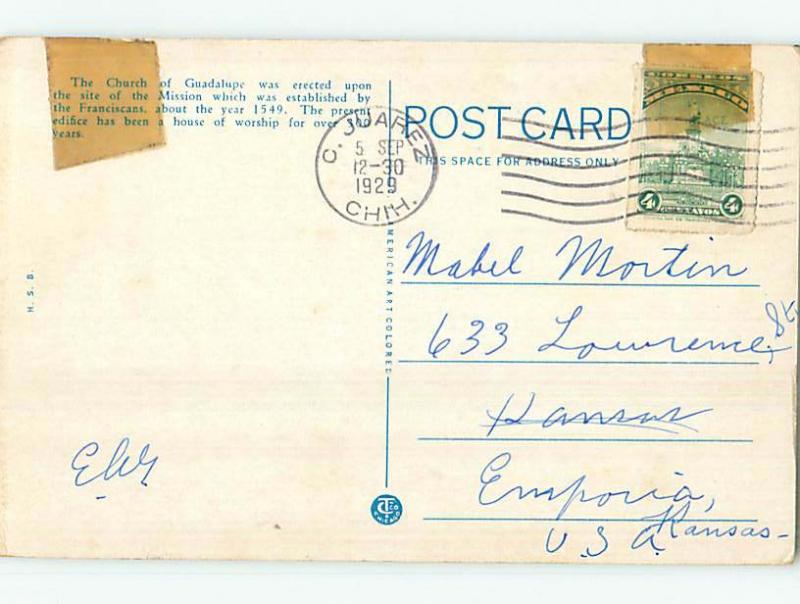 The Church of Guadalupe was erected upon
the site of the Mission which was established by
the Franciscans, about the year 1549. The present
edifice has been a house of worship for over 300
years.
H. S. B.
AMERICAN ART COLORED
POST CARD
THIS SPACE FOR ADDRESS ONLY
C. JUAREZ
5 SEP
12-30
1929
CHIH.
4 CENTAVOS 4
Mabel Mortin
633 Lawrence St
Kansas
Emporia,
Kansas-
U S A
CHICAGO